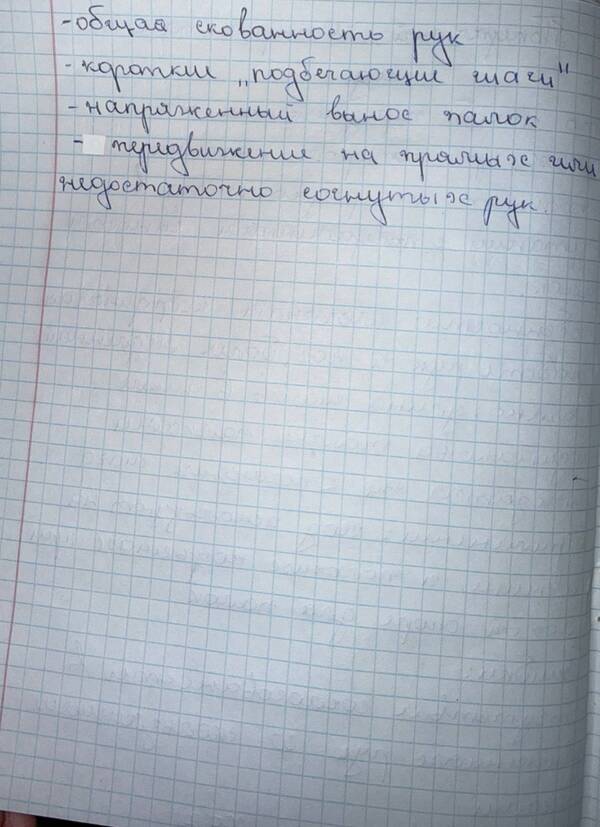 -общая скованность рук
-короткие „подбегающие шаги"
-напряженный вынос палок
- передвижение на прямых или
недостаточно согнутых рук.